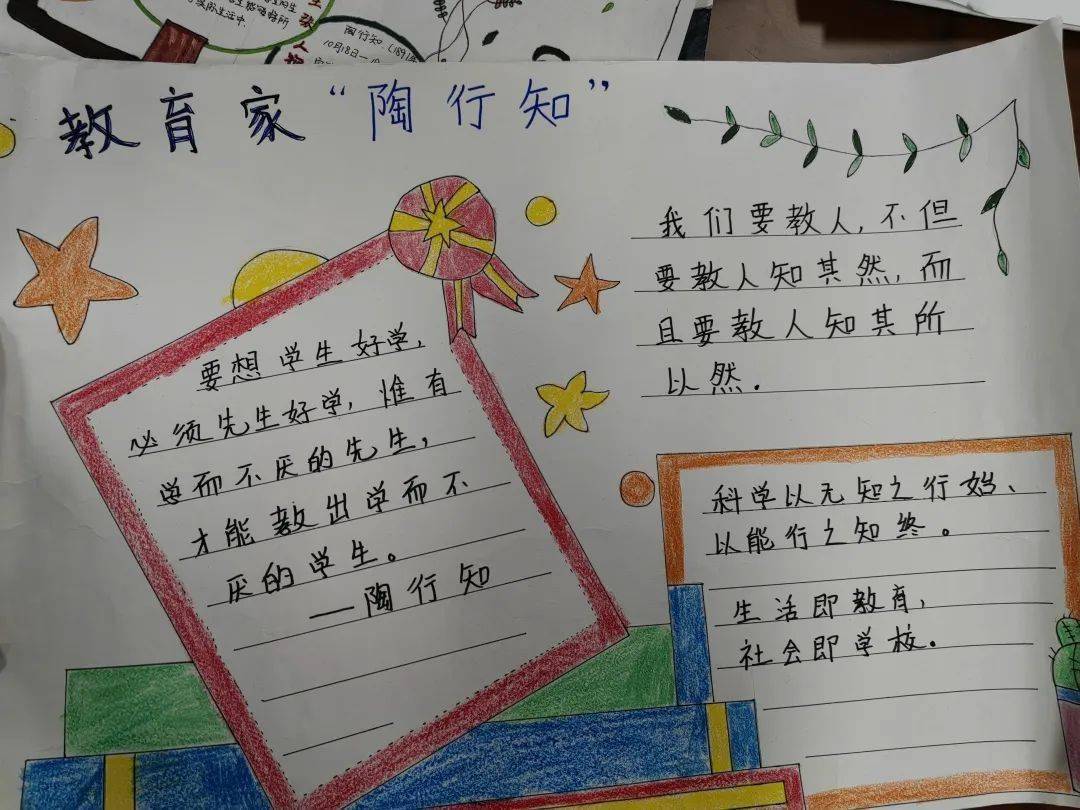 陶行知(1891年
10月18日一
教育家“陶行知”
要想学生好学,
必须先生好学,惟有
学而不厌的先生,
才能教出学而不
厌的学生。
—陶行知
我们要教人,不但
要教人知其然,而
且要教人知其所
以然.
科学以无知之行始、
以能行之知终。
生活即教育,
社会即学校.